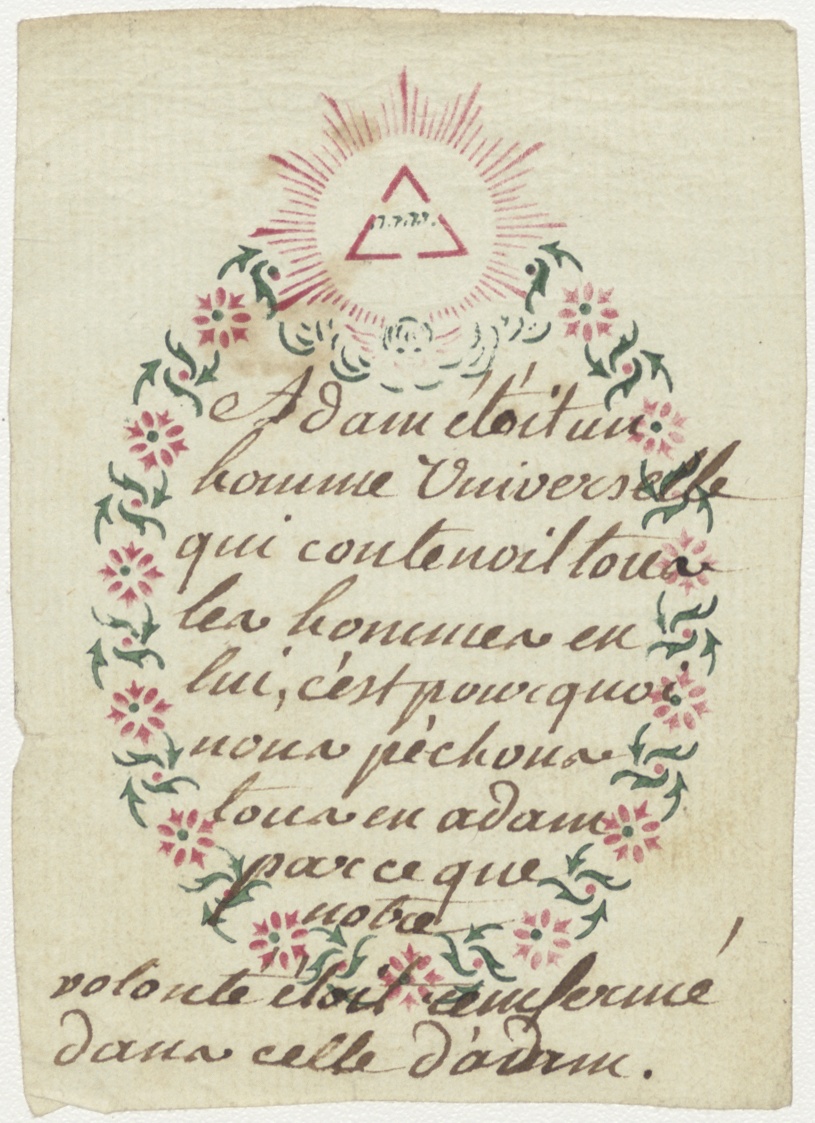 Adam étoit un
homme Universelle
qui contenoit tous
les hommes en
lui, c'est pourquoi
nous péchons
tous en adam
parceque
notre
volonté étoit renfermé
dans celle d'adam.